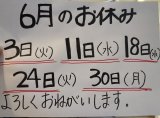 6月のお休み
3日(火) 11日(水) 18日(水)
24日(火) 30日(月)
よろしくおねがいします。